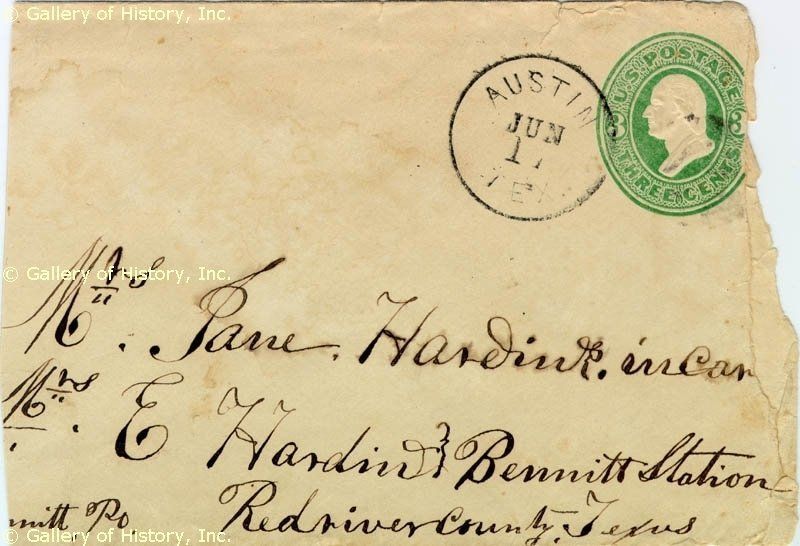 © Gallery of History, Inc.
U.S. POSTAGE
3 3
THREE CENTS
AUSTIN
JUN
TEX
© Gallery of History, Inc.
Mrs. Jane. Hardin. in car
Mrs. E Hardin Bennitt Station
nnitt Po Redriver County, Texus
© Gallery of History, Inc.